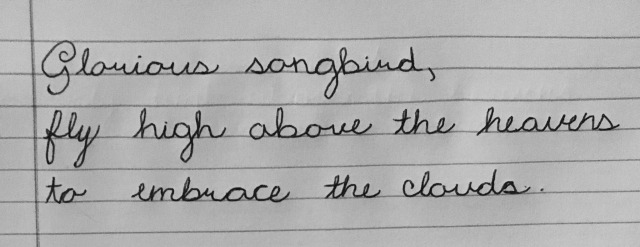 Glorious songbird,
fly high above the heavens
to embrace the clouds.